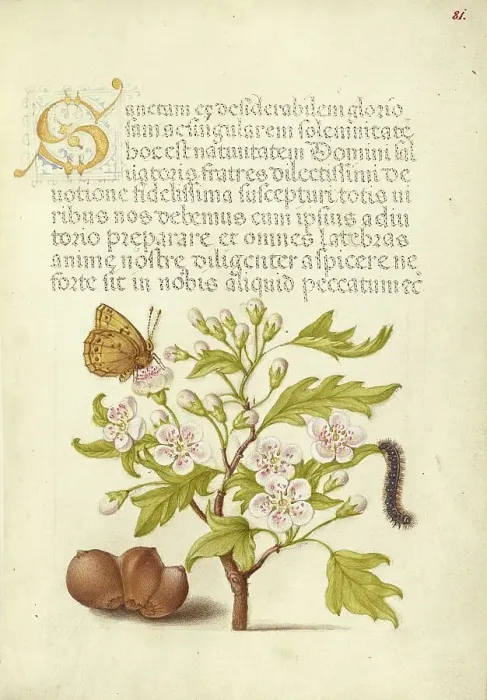 81.
Sanctam et desiderabilem glorio
sam ac singularem solemnitate,
hoc est nativitatem Domini sal
vatoris fratres dilectissimi de
votione fidelissima suscepturi totis vi
ribus nos debemus cum ipsius adiu
torio preparare et omnes latebras
animę nostrę diligenter aspicere ne
forte sit in nobis aliquid peccatum et